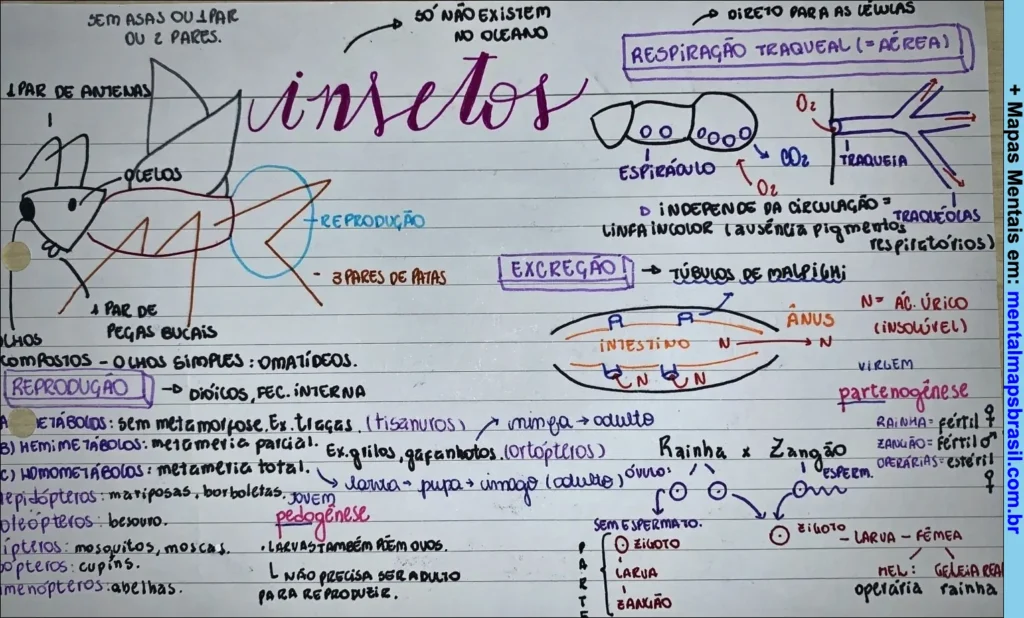 SEM ASAS OU 1 PAR
OU 2 PARES.
SÓ NÃO EXISTEM
NO OCEANO
DIRETO PARA AS CÉLULAS
insetos
RESPIRAÇÃO TRAQUEAL (= AÉREA)
1 PAR DE ANTENAS
OCELOS
REPRODUÇÃO
3 PARES DE PATAS
1 PAR DE
PEÇAS BUCAIS
OLHOS
COMPOSTOS - OLHOS SIMPLES: OMATÍDEOS.
ESPIRÁCULO
CO2
O2
O2
TRAQUEIA
TRAQUÉOLAS
INDEPENDE DA CIRCULAÇÃO =
LINFA INCOLOR (ausência pigmentos
respiratórios)
EXCREÇÃO → TÚBULOS DE MALPIGHI
INTESTINO
N → N
ÂNUS
N
N
N = ÁC. ÚRICO
(INSOLÚVEL)
REPRODUÇÃO → DIÓICOS, FEC. INTERNA
A ETÁBOLOS: sem metamorfose. Ex. traças (tisanuros)
B) HEMIMETÁBOLOS: metameria parcial. Ex. grilos, gafanhotos. (ortópteros)
ninfa → adulto
C) HOMOMETÁBOLOS: metameria total.
larva → pupa → imago (adulto)
lepidópteros: mariposas, borboletas.
oleópteros: besouro.
ípteros: mosquitos, moscas.
ópteros: cupins.
menópteros: abelhas.
JOVEM
pedogênese
. LARVAS TAMBÉM PÕEM OVOS.
NÃO PRECISA SER ADULTO
PARA REPRODUZIR.
VIRGEM
partenogênese
RAINHA = fértil ♀
ZANGÃO = fértil ♂
OPERÁRIAS = estéril ♀
Rainha x Zangão
ÓVULO:
ESPERM.
SEM ESPERMATO.
PARTE
ZIGOTO
LARVA
ZANGÃO
ZIGOTO - LARVA - FÊMEA
MEL: operária
GELEIA REA
rainha
+ Mapas Mentais em: mentalmapsbrasil.com.br